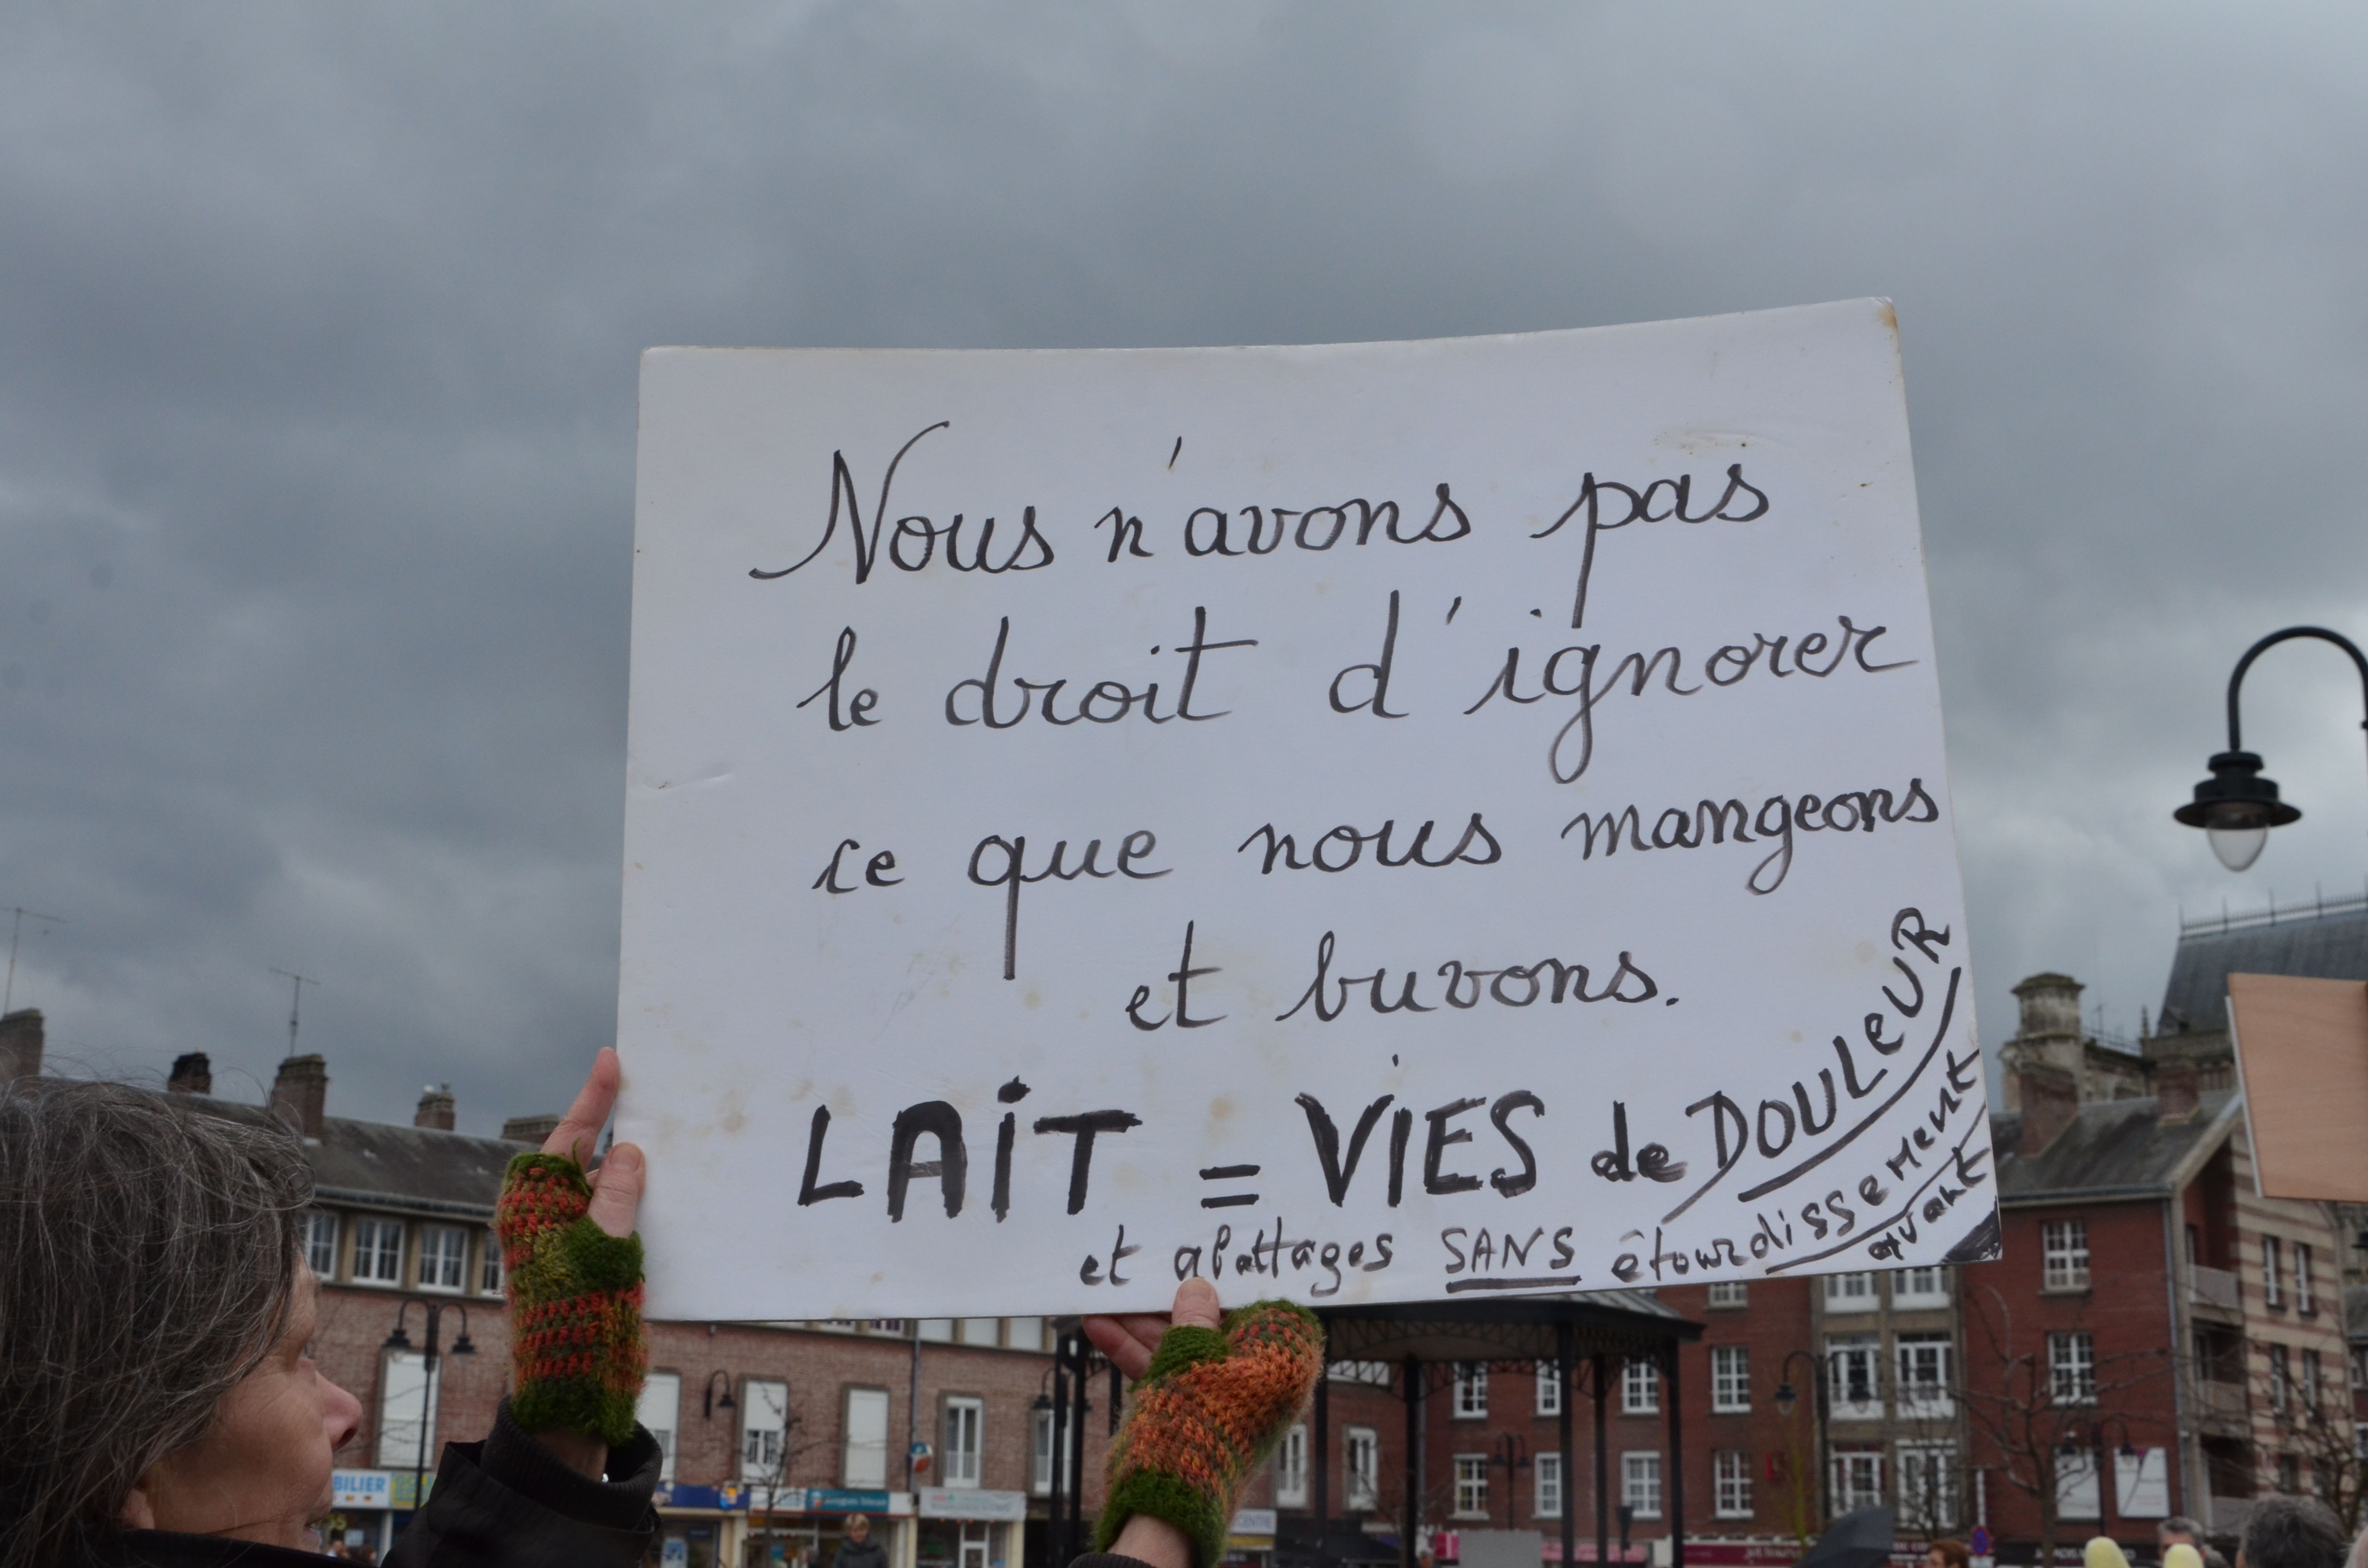 Nous n'avons pas
le droit d'ignorer
ce que nous mangeons
et buvons.
LAiT = ViES de DOULeUR
et abattages SANS étourdissement
avant
BILIER